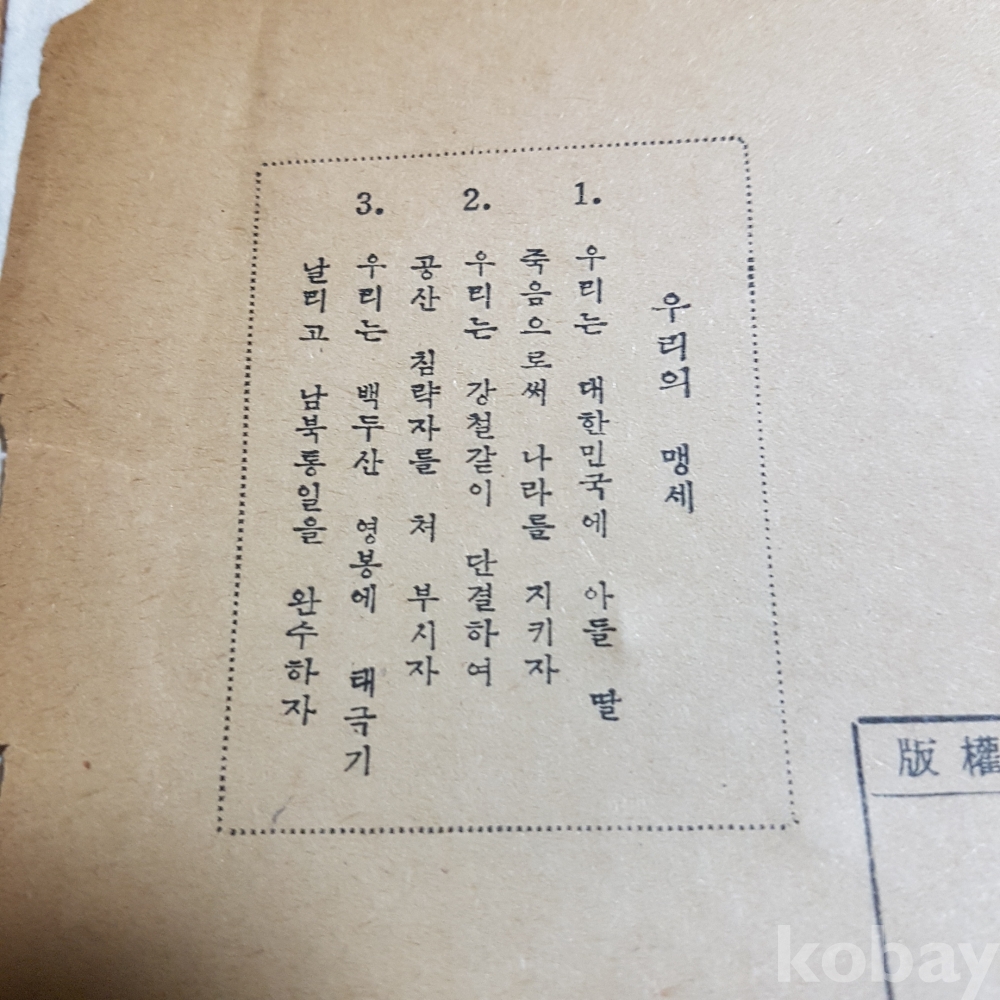 우리의 맹세
1. 우리는 대한민국에 아들 딸
죽음으로써 나라를 지키자
2. 우리는 강철같이 단결하여
공산 침략자를 쳐 부시자
3. 우리는 백두산 영봉에 태극기
날리고 남북통일을 완수하자
版權
kobay